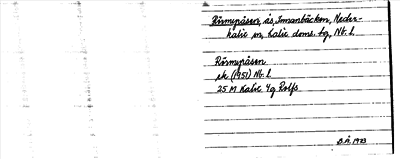 Rörmyråsen, ås, Innanbäcken, Neder-
kalix sn, Kalix doms. tg, Nb. l.
Rörmyråsen
ek (1951) Nb. l.
25 M Kalix 4g Rolfs
B.Å. 1973